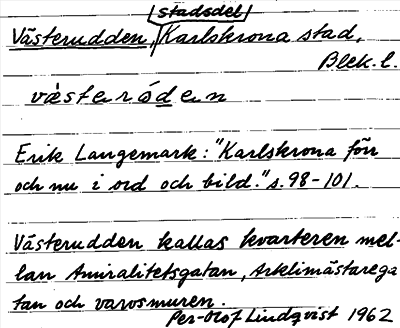 stadsdel
Västerudden, Karlskrona stad,
Blek. l.
västerúden
Erik Langemark: "Karlskrona förr
och nu i ord och bild." s. 98-101.
Västerudden kallas kvarteren mel-
lan Amiralitetsgatan, Arklimästarega
tan och varvsmuren.
Per-Olof Lindqvist 1962